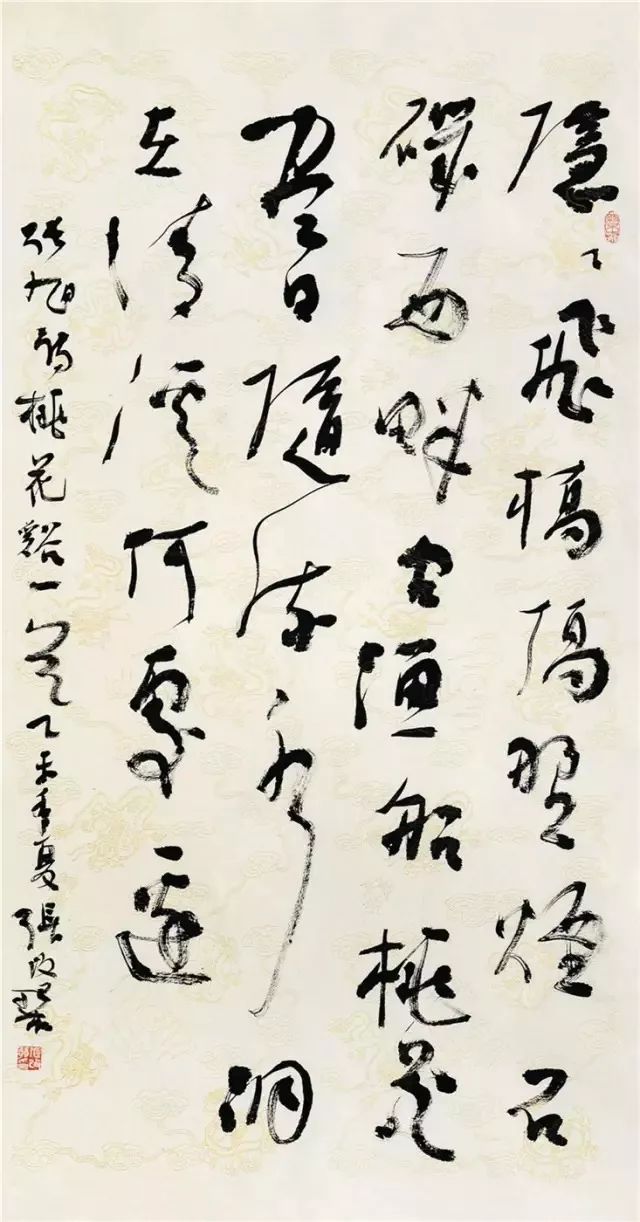 隱〻飛橋隔野煙石
磯西畔问漁船桃花
盡日隨流水洞
在清溪何處邊
张旭詩桃花谿一首乙未年夏張改琴